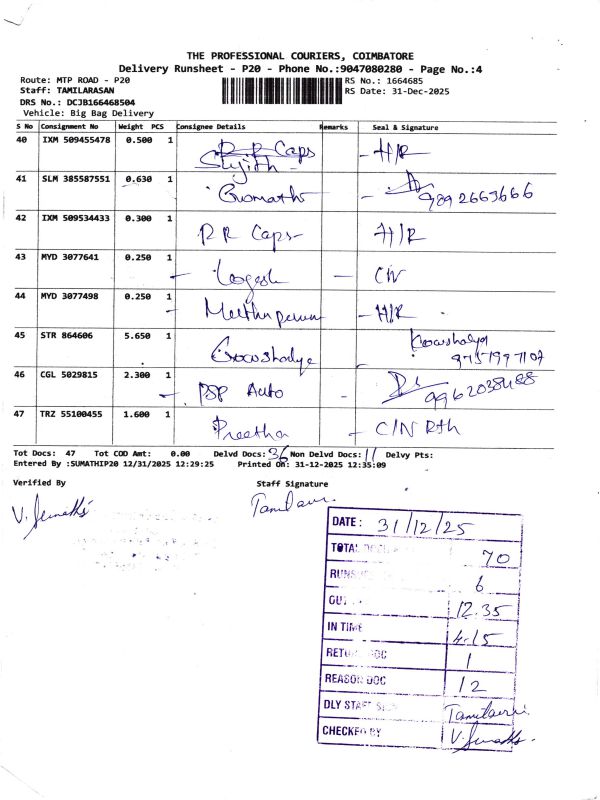 THE PROFESSIONAL COURIERS, COIMBATORE
Delivery Runsheet - P20 - Phone No.:9047080280 - Page No.:4
Route: MTP ROAD - P20 RS No.: 1664685
Staff: TAMILARASAN RS Date: 31-Dec-2025
DRS No.: DCJB166468504
Vehicle: Big Bag Delivery
S No Consignment No Weight PCS Consignee Details Remarks Seal & Signature
40 IXM 509455478 0.500 1 R R Caps - H/R
Srijith -
41 SLM 385587551 0.630 1 Gomathi - 9892663666
42 IXM 509534433 0.300 1 R R Caps - H/R
43 MYD 3077641 0.250 1 - Logesh - C/N
44 MYD 3077498 0.250 1 - - H/R
45 STR 864606 5.650 1 Gowshalya Gowshalya
9751997107
46 CGL 5029815 2.300 1 - PSP Auto 9962038488
47 TRZ 55100455 1.600 1 Preetha - C/N Rth
Tot Docs: 47 Tot COD Amt: 0.00 Delvd Docs: 36 Non Delvd Docs: 11 Delvy Pts:
Entered By :SUMATHIP20 12/31/2025 12:29:25 Printed On: 31-12-2025 12:35:09
Verified By Staff Signature
V. Sumathi Tamilarasi
DATE: 31/12/25
TOTAL 70
RUNS 6
OUT 12.35
IN TIME 4.15
RETURN DOC 1
REASON DOC 12
DLY STAFF SIGN
CHECKED BY V. Sumathi.